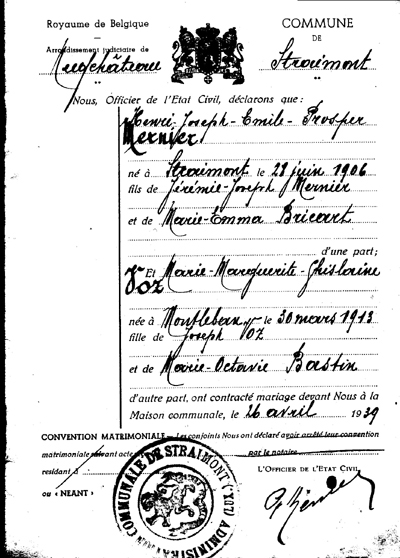 Royaume de Belgique
Arrondissement judiciaire de
Neufchâteau
COMMUNE
DE
Straimont
Nous, Officier de l'Etat Civil, déclarons que :
Henri-Joseph-Emile-Prosper
Mernier
né à Straimont le 28 juin 1906
fils de Jérémie-Joseph Mernier
et de Marie-Emma Bricart
d'une part;
Et Marie-Marguerite-Ghislaine
Joz
née à Montleban le 30 mars 1913
fille de Joseph Joz
et de Marie-Octavie Bastin
d'autre part, ont contracté mariage devant Nous à la
Maison communale, le 26 avril 1939
CONVENTION MATRIMONIALE - Les conjoints Nous ont déclaré avoir arrêté leur convention
matrimoniale suivant acte par le notaire
résidant à
ou « NÉANT »
L'OFFICIER DE L'ETAT CIVIL,
COMMUNALE DE STRAIMONT (LUX) ADMINISTRATION